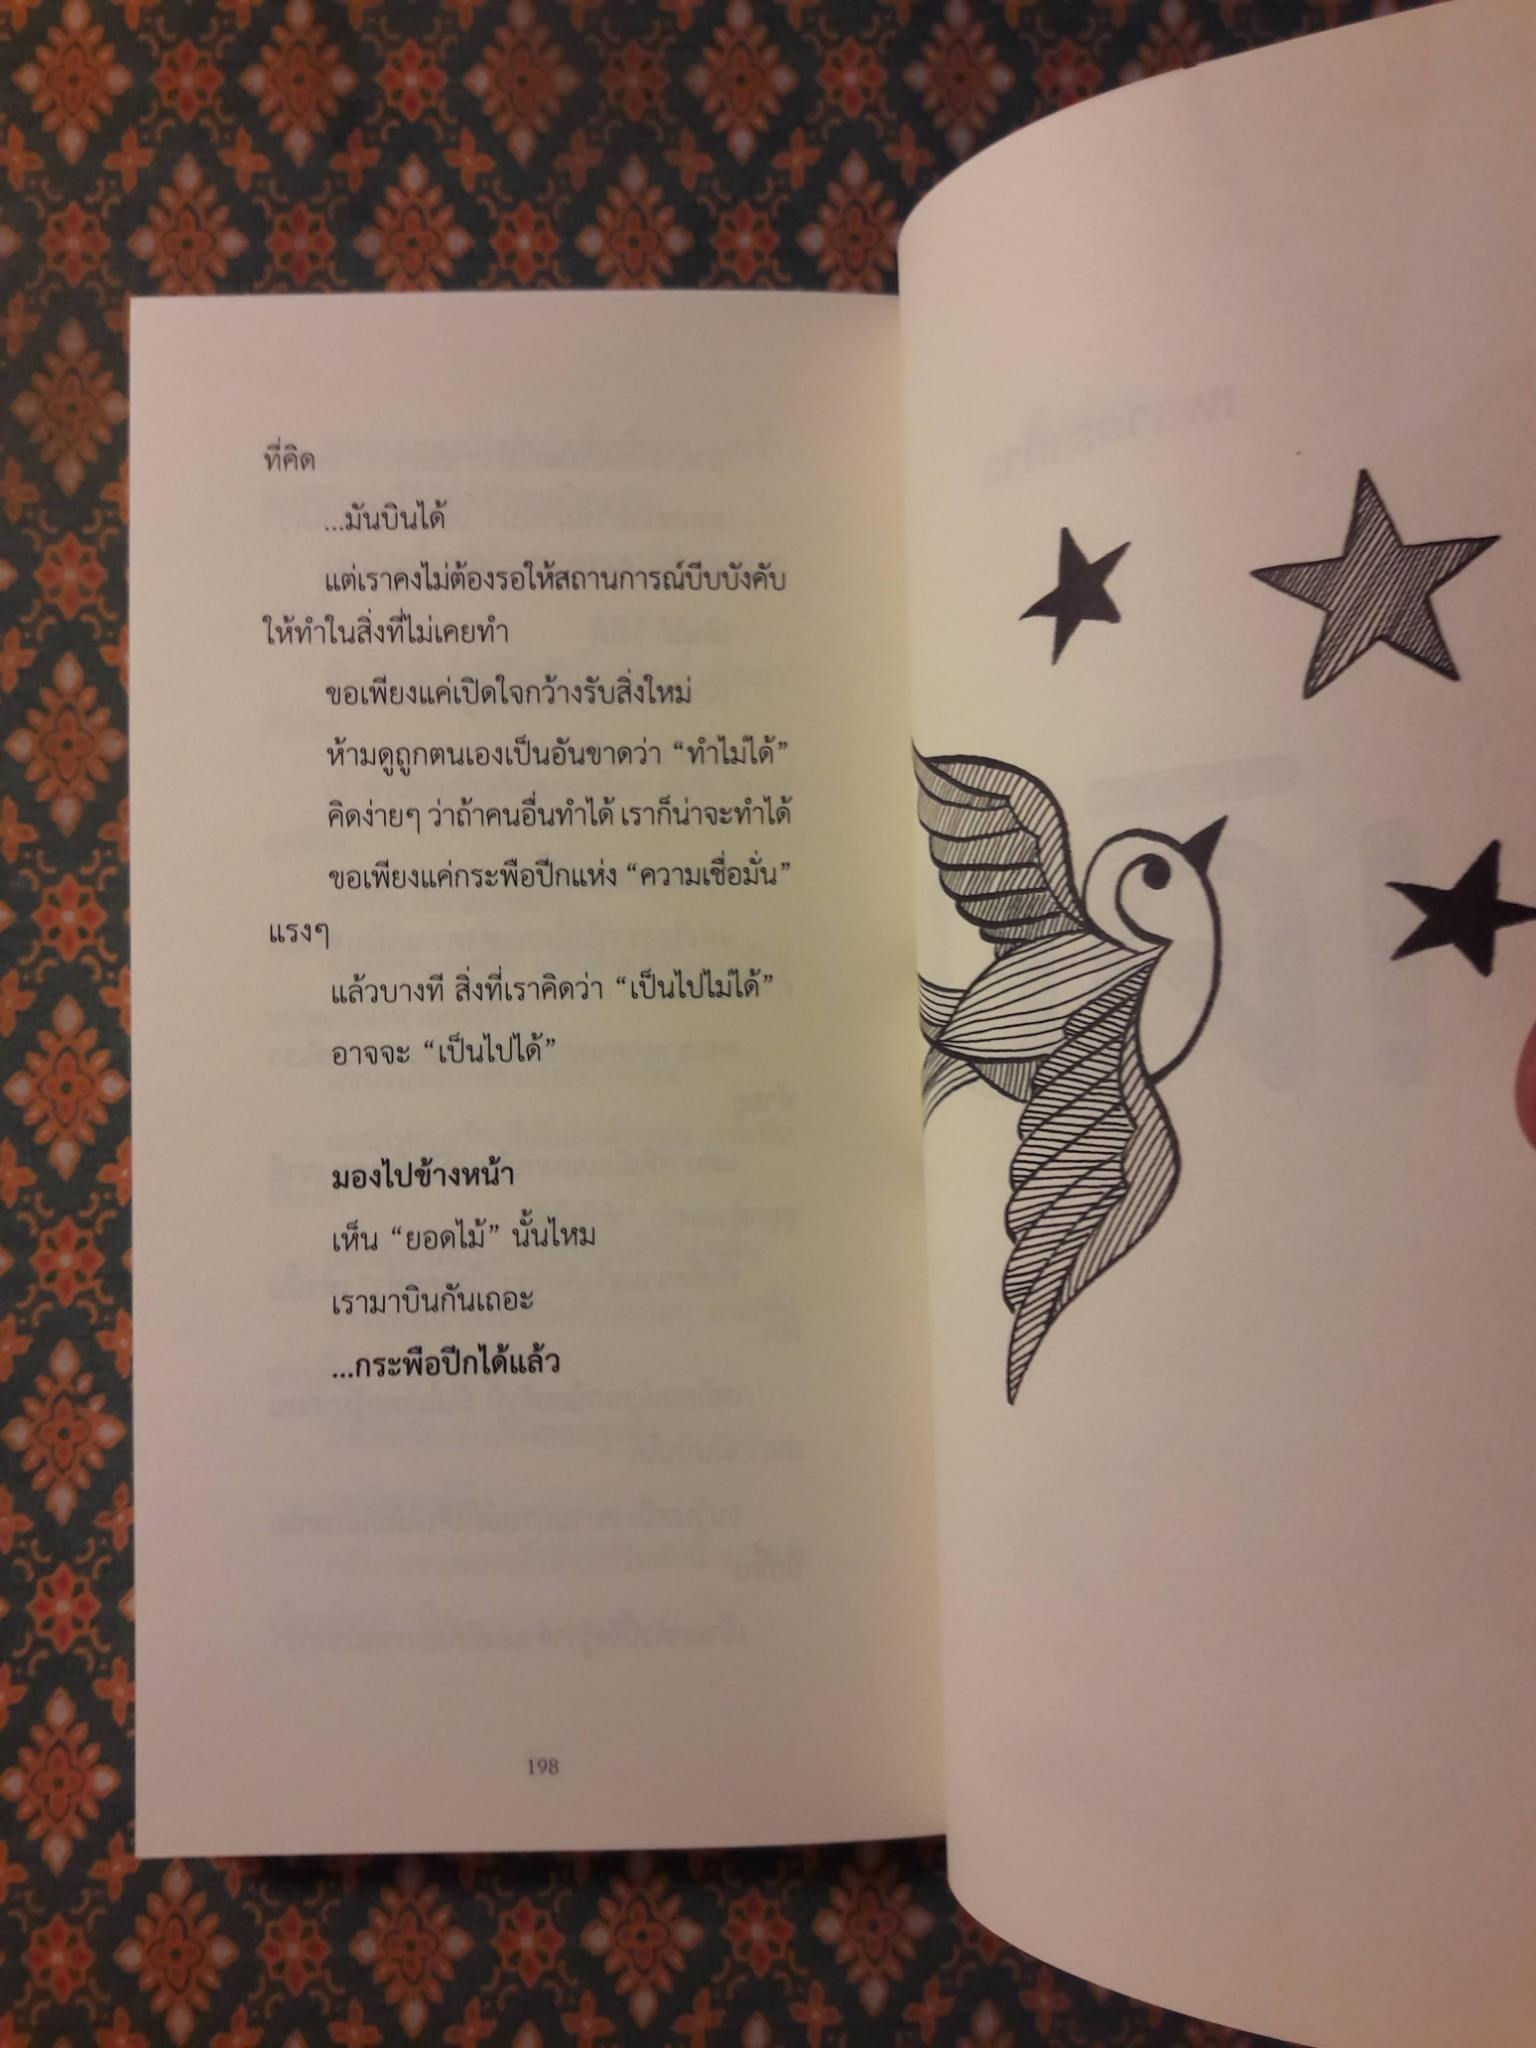 ที่คิด
...มันบินได้
แต่เราคงไม่ต้องรอให้สถานการณ์บีบบังคับ
ให้ทำในสิ่งที่ไม่เคยทำ
ขอเพียงแค่เปิดใจกว้างรับสิ่งใหม่
ห้ามดูถูกตนเองเป็นอันขาดว่า “ทำไม่ได้”
คิดง่ายๆ ว่าถ้าคนอื่นทำได้ เราก็น่าจะทำได้
ขอเพียงแค่กระพือปีกแห่ง “ความเชื่อมั่น”
แรงๆ
แล้วบางที สิ่งที่เราคิดว่า “เป็นไปไม่ได้”
อาจจะ “เป็นไปได้”
มองไปข้างหน้า
เห็น “ยอดไม้” นั้นไหม
เรามาบินกันเถอะ
...กระพือปีกได้แล้ว
198